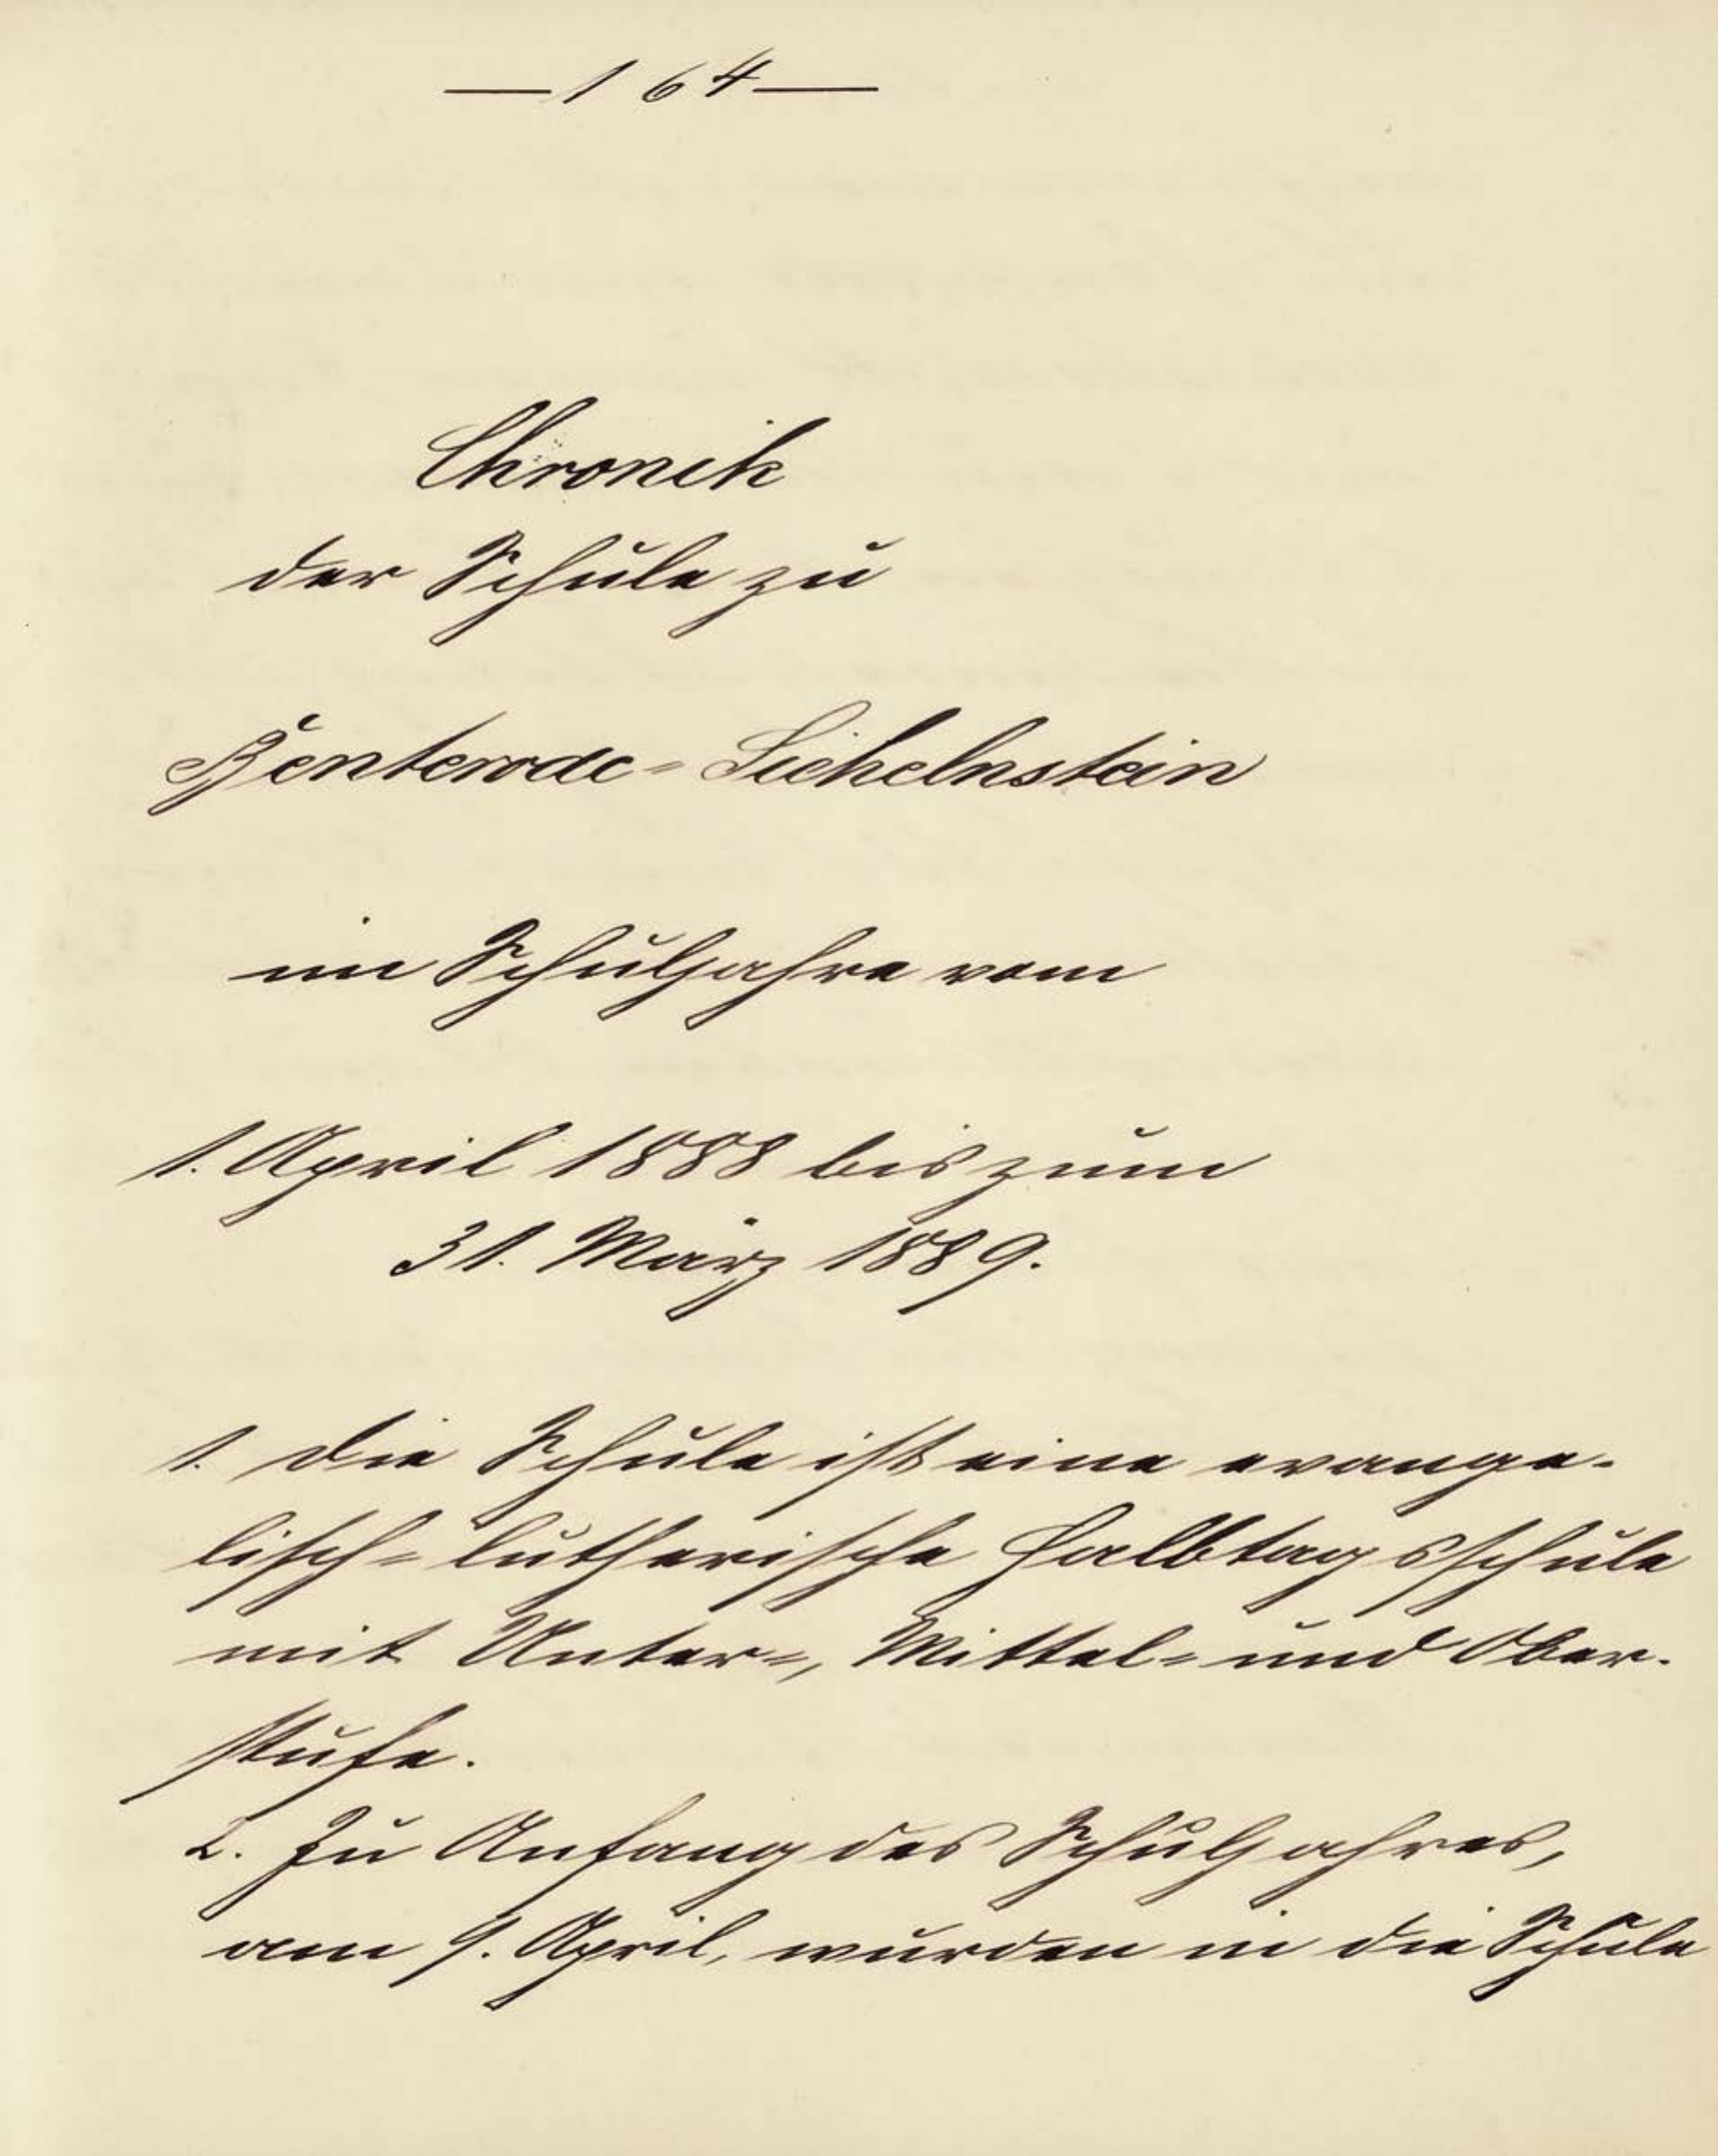 — 164 —
Chronik
der Schule zu
Benterode-Sichelnstein
im Schuljahre vom
1. April 1888 bis zum
31. März 1889.
1. Die Schule ist eine evange-
lisch-lutherische Halbtagsschule
mit Unter-, Mittel- und Ober-
stufe.
2. Zu Anfang des Schuljahres,
am 9. April, wurden in die Schule